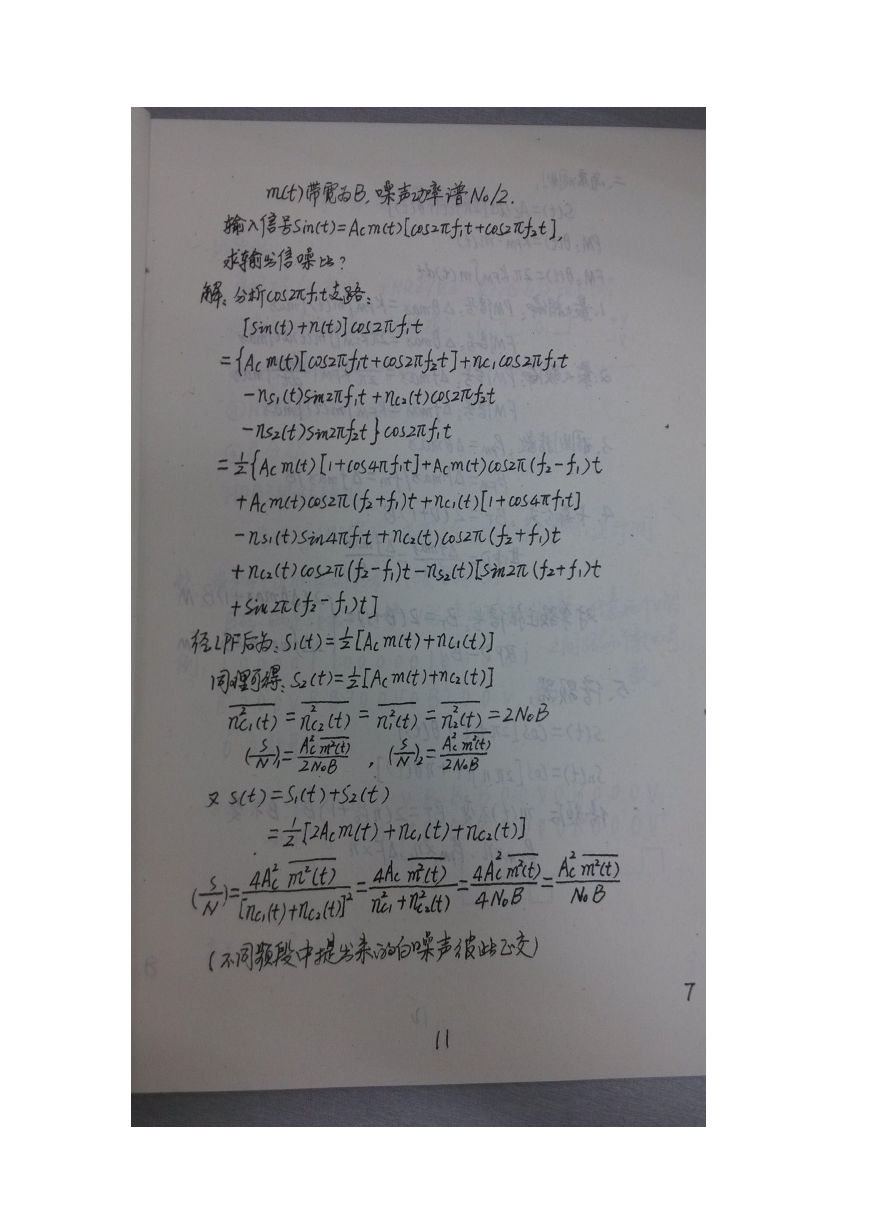 m(t)带宽为B,噪声功率谱No/2.
输入信号Sin(t)=Acm(t)[cos2πf₁t+cos2πf₂t],
求输出信噪比?
解:分析cos2πf₁t支路:
[Sin(t)+n(t)]cos2πf₁t
={Acm(t)[cos2πf₁t+cos2πf₂t]+nc₁cos2πf₁t
-ns₁(t)sin2πf₁t+nc₂(t)cos2πf₂t
-ns₂(t)sin2πf₂t}cos2πf₁t
=½{Acm(t)[1+cos4πf₁t]+Acm(t)cos2π(f₂-f₁)t
+Acm(t)cos2π(f₂+f₁)t+nc₁(t)[1+cos4πf₁t]
-ns₁(t)sin4πf₁t+nc₂(t)cos2π(f₂+f₁)t
+nc₂(t)cos2π(f₂-f₁)t-ns₂(t)[sin2π(f₂+f₁)t
+sin2π(f₂-f₁)t]
经LPF后为:S₁(t)=½[Acm(t)+nc₁(t)]
同理可得:S₂(t)=½[Acm(t)+nc₂(t)]
n²c₁(t)=n²c₂(t)=n₁²(t)=n₂²(t)=2NoB
(S/N)₁=Ac²m²(t)/2NoB,(S/N)₂=Ac²m²(t)/2NoB
又s(t)=S₁(t)+S₂(t)
=½[2Acm(t)+nc₁(t)+nc₂(t)]
(S/N)=4Ac²m²(t)/[nc₁(t)+nc₂(t)]²=4Ac m²(t)/n²c₁+n²c₂(t)=4Ac²m²(t)/4NoB=Ac²m²(t)/NoB
(不同频段中提出来的白噪声彼此正交)
7
11